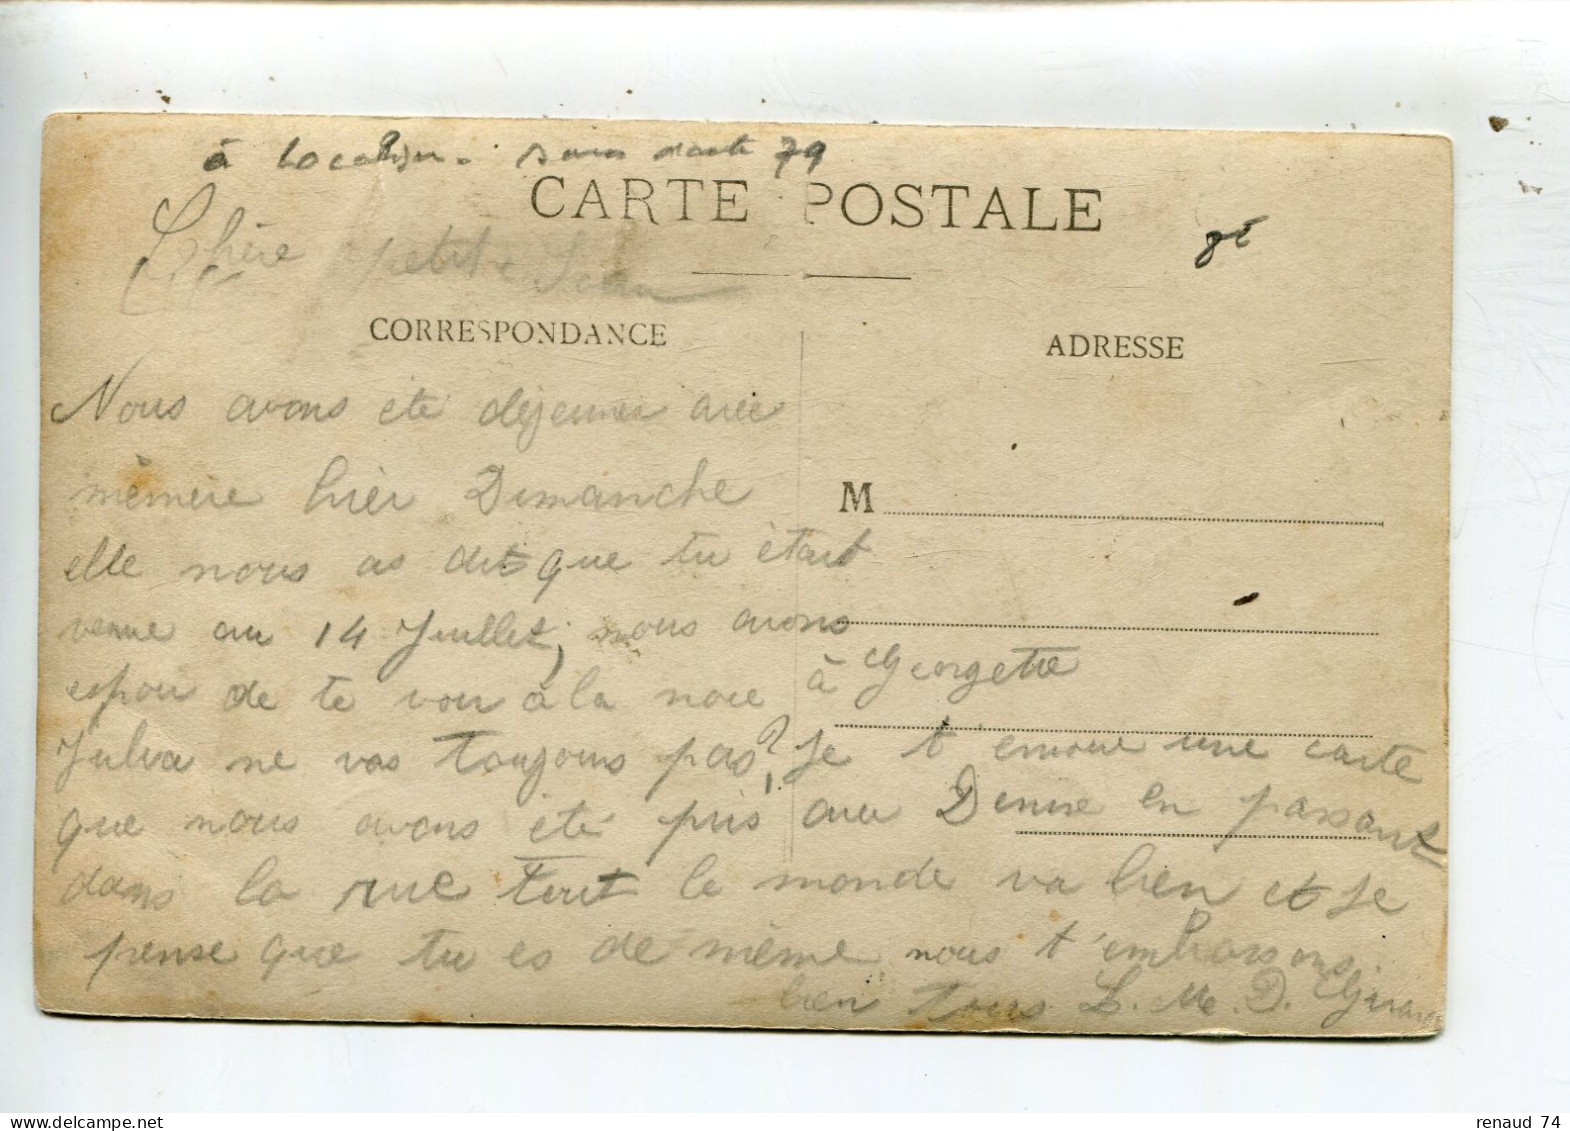 à localiser. sans doute 79
CARTE POSTALE
Chère petit Jean
CORRESPONDANCE
ADRESSE
Nous avons eté dejeuner avec
mèmere hièr Dimanche
elle nous as dit que tu étais
venue au 14 Juillet, nous avons
espoir de te voir à la noce à Georgette
Julia ne vas toujours pas? Je t'envoie une carte
que nous avons été pris avec Denise en passant
dans la rue Tout le monde va bien et Je
pense que tu es de même nous t'embrassons
bien tous L. Me. D. Girard
M
delcampe.net
renaud 74